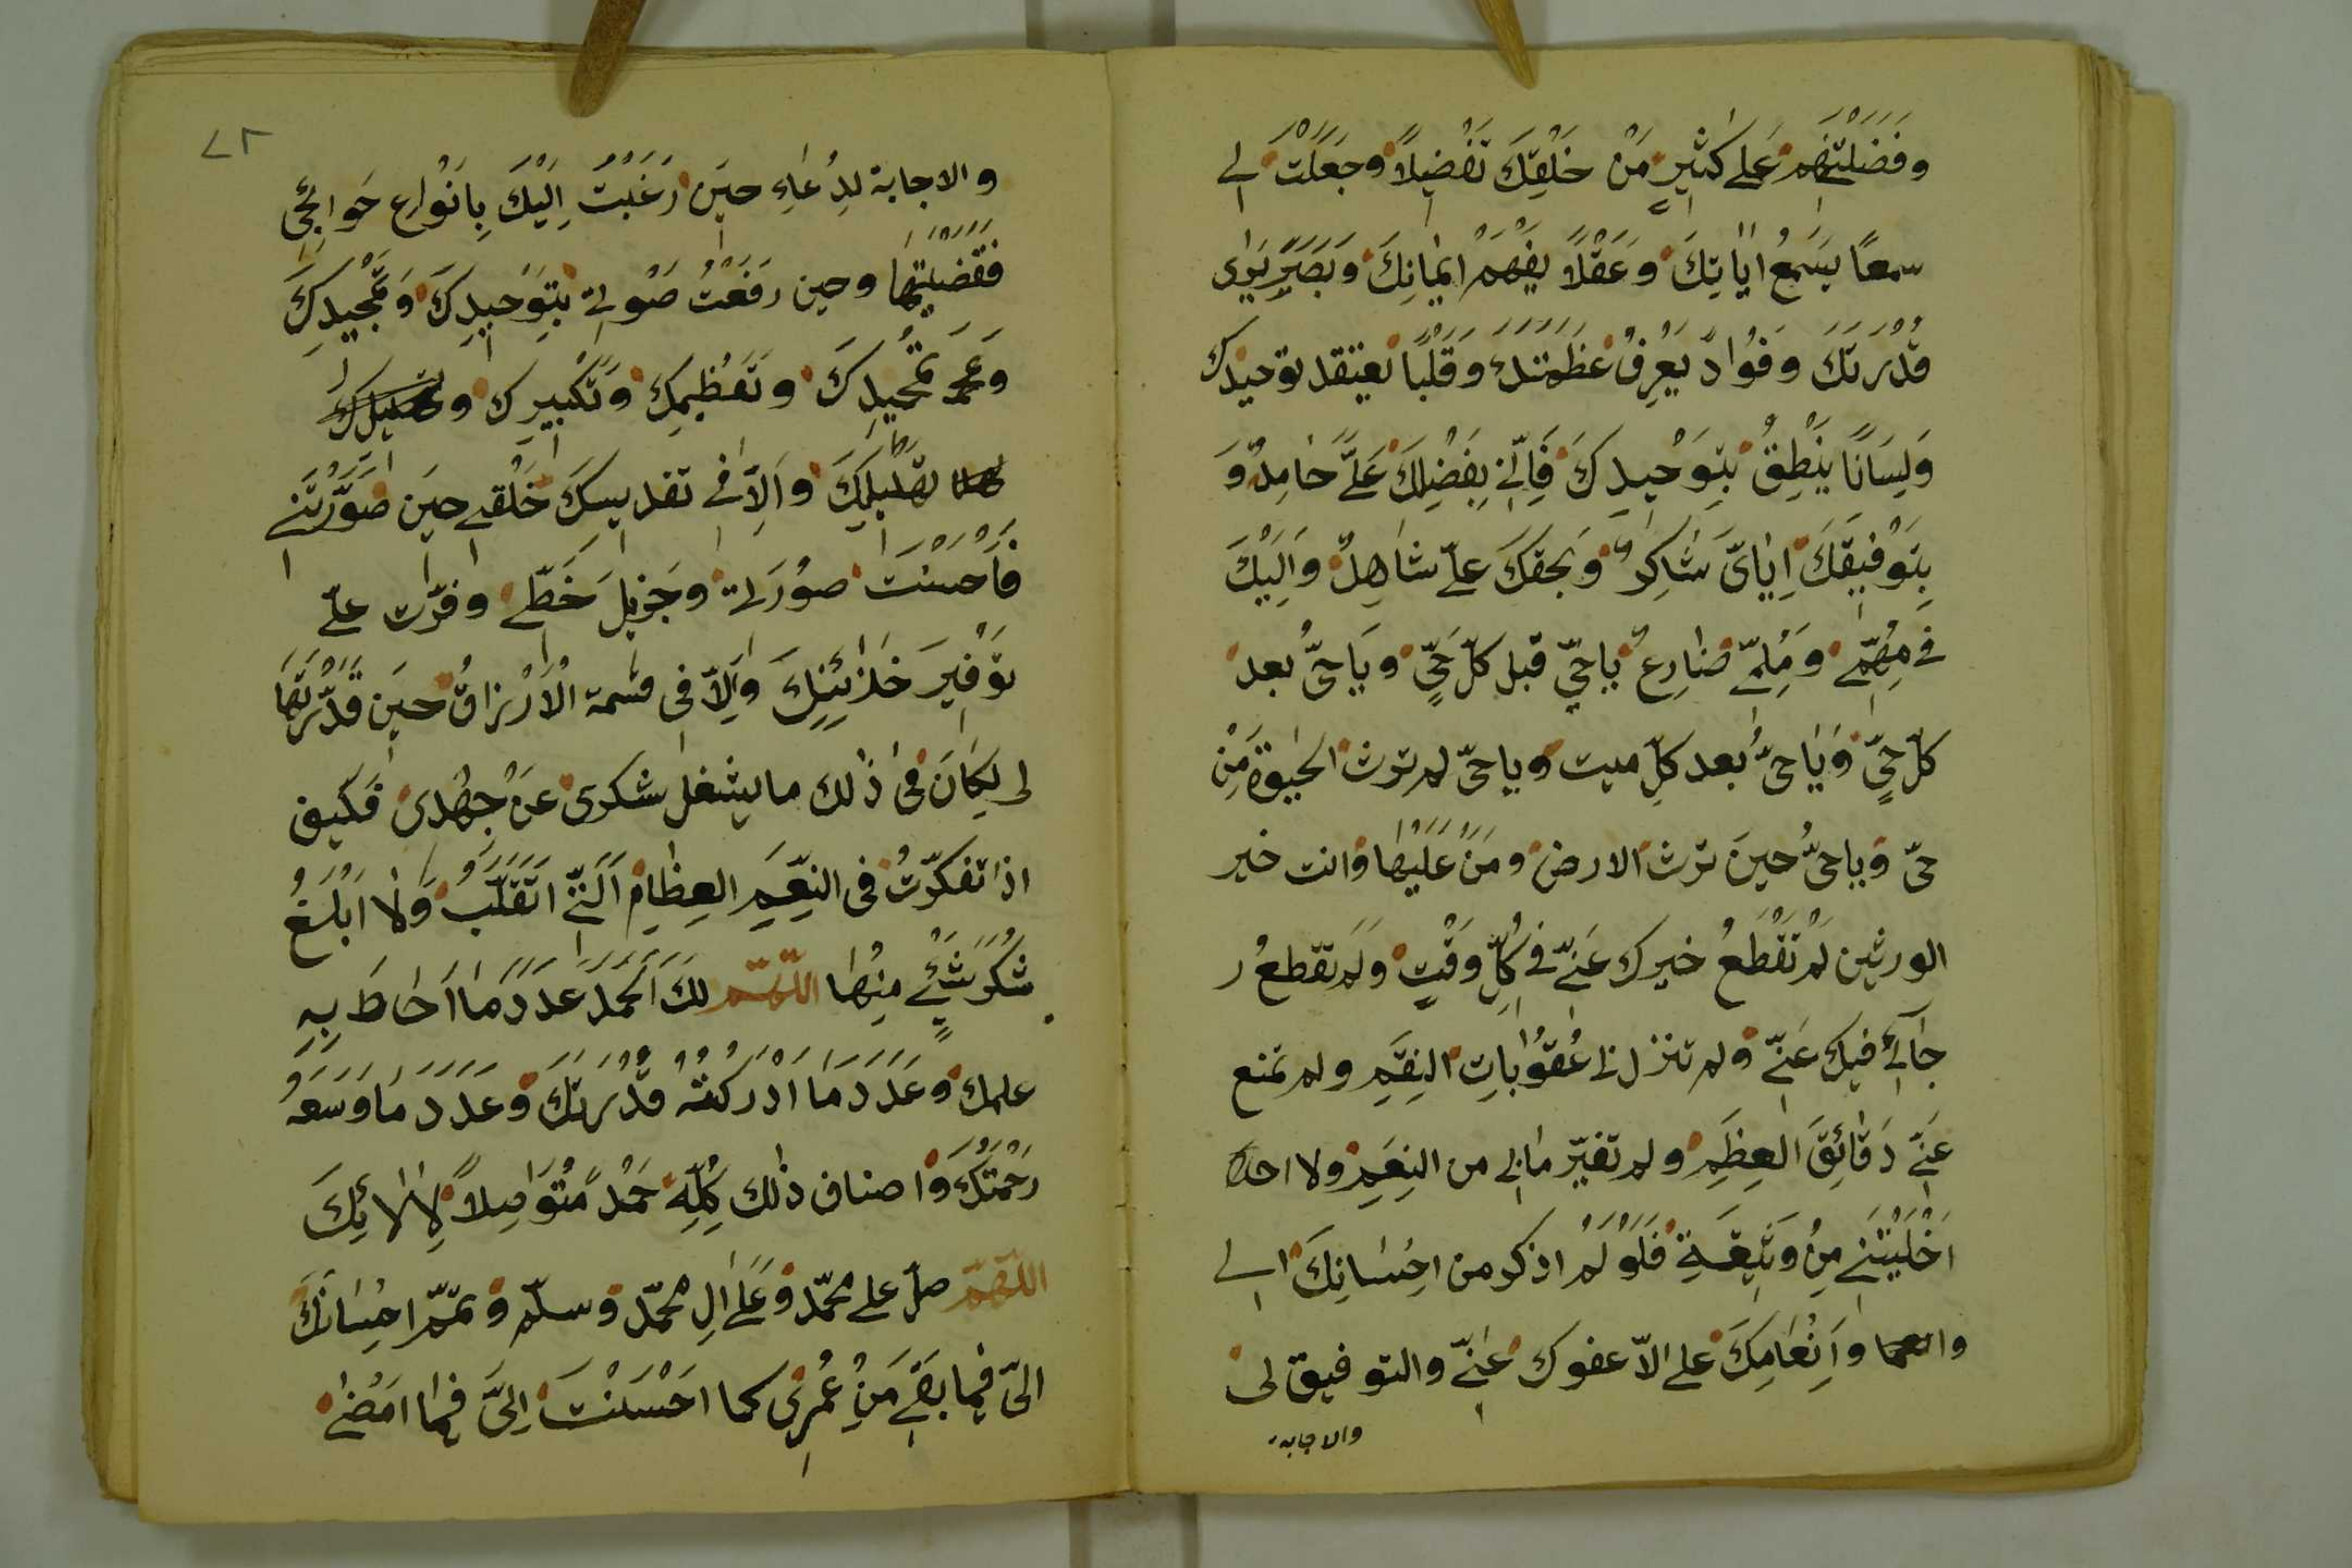 وَفَضَّلْتَهُمْ عَلٰى كَثِيرٍ مِّنْ خَلْقِكَ تَفْضِيلاً وَجَعَلْتَ لِى
سمعًا يَسْمَعُ اٰيَاتِكَ وَعَقْلًا يَفْهَمُ اِيمَانِكَ وَبَصَرٍ يَرٰى
قُدْرَتَكَ وَفُوَادً يَعْرِفُ عَظَمَتَكَ وَقَلْبًا يَعتقد توحيدك
وَلِسَانًا يَنْطِقُ بِتَوْحِيدِكَ فَاِنِّى بِفَضْلِكَ عَلَىَّ حَامِدٌ وَ
بِتَوْفِيقَكَ اِيَّاىَّ شَاكِرٌ وَبَحقكَ علىّ شَاهِدٌ وَاِلَيْكَ
فى مُهِمِّى وَمُلِمِّى ضَارِعٌ يَاحَىّ قبل كلّ حَىٍّ وَيَاحَىُّ بعد
كلّ حَىٍّ وَيَاحَىُّ بعد كلِّ ميت وياحىّ لم ترث الحيٰوة مِنْ
حىّ وَياحىُّ حينَ ترث الارض ومَنْ عَلَيْهَا وَانت خير
الورثين لَمْ تَقْطَعْ خيرك عَنِّى فى كُلِّ وَقْتٍ وَلَم تقطعُ ر
جَآئى فيك عَنِّى وَلم تنزل لى عُقُوبَاتِ النِقَمِ ولم تمنع
عَنِّى دَقَائِقَ العِظَمِ ولم تغيّر مابى من النِعَمِ ولا
اَخْلَيْتَنِى مِنْ وَثِيقَةِ فَلَوْ لَمْ اذكر من اِحْسَانِكَ الى
وَاِنْعَامِكَ على الاّ عفوك عَنِّى والتوفيق لى
والاجابة
٧٢
والاجابة لدُعَاءِ حينَ رَغَبْتُ اِلَيْكَ بِاَنْوَاعِ حَوَائِجِى
فَقَضَيْتَهَا وحين رفَعْتُ صَوْتى بِتَوحِيدِكَ وَتَمْجِيدِكَ
وَتَحمِيدِكَ وتَعْظِيمِكَ وَتَكْبِيرِك و
تهْلِيلِكَ وَاَلِاَّ فى تقديسكَ خَلْقى حينَ صَوَّرْتَنِى
فَاَحْسَنْتَ صُورَتى وَجَزيلَ حَظّى وفرّت علىّ
توْفِيرَ خَزَائِنِكَ وَاَلِاّ فى قسمة الْاَرْزاقُ حينَ قَدَّرْتَهَا
لى لِكَانَ فى ذٰلك ما يشغل شكرى عَنْ جُهْدى فكيف
اذا تفكّرتُ فى النِعَمِ العِظَامِ اَلَّتِى اتَقَلَّبُ وَلَا اَبْلُغُ
شُكْرَ شَيْئٍ مِنْهَا اَللّٰهُمَّ لكَ اَلحَمْد عَدَدَ مَا اَحَاطَ بِهِ
علمك وَعَدَدَ مَا اَدْرَكَتْهُ قُدْرَتَكَ وَعَدَدَ مَا وَسَعَهُ
رَحْمَتَكَ وَاصناف ذٰلك كُلِّهِ حَمْدً مُتَوَاصِلاً لِاٰلَائِكَ
اللّٰهُمَّ صلّ على محمّد وَعَلٰى اٰلِ محمّد وَسلّم وَتمّم احْسَانَكَ
الىّ فيما بَقِىَ مِنْ عُمْرِى كما احْسَنْتَ اِلىَّ فيما امَضٰى